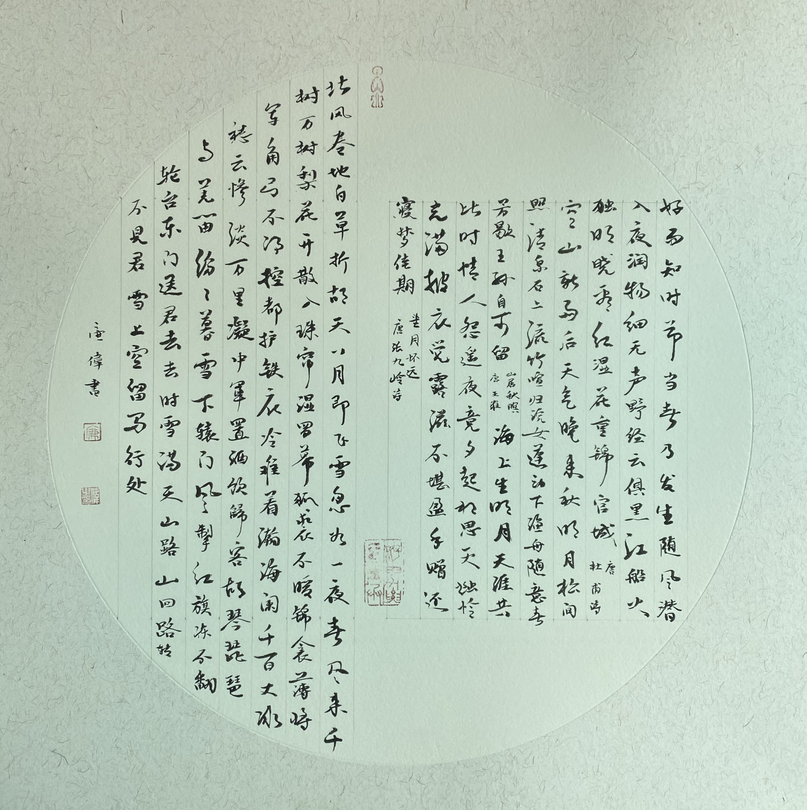 好雨知时节当春乃发生随风潜
入夜润物细无声野径云俱黑江船火
独明晓看红湿花重锦官城
唐
杜甫诗
空山新雨后天气晚来秋明月松间
照清泉石上流竹喧归浣女莲动下渔舟随意春
芳歇王孙自可留
山居秋暝
唐王维
海上生明月天涯共
此时情人怨遥夜竟夕起相思灭烛怜
光满披衣觉露滋不堪盈手赠还
寝梦佳期
望月怀远
唐张九龄诗
北风卷地白草折胡天八月即飞雪忽如一夜春风来千
树万树梨花开散入珠帘湿罗幕狐裘不暖锦衾薄将
军角弓不得控都护铁衣冷难着瀚海阑干百丈冰
愁云惨淡万里凝中军置酒饮归客胡琴琵琶
与羌笛纷々暮雪下辕门风掣红旗冻不翻
轮台东门送君去去时雪满天山路山回路转
不见君雪上空留马行处
偉書